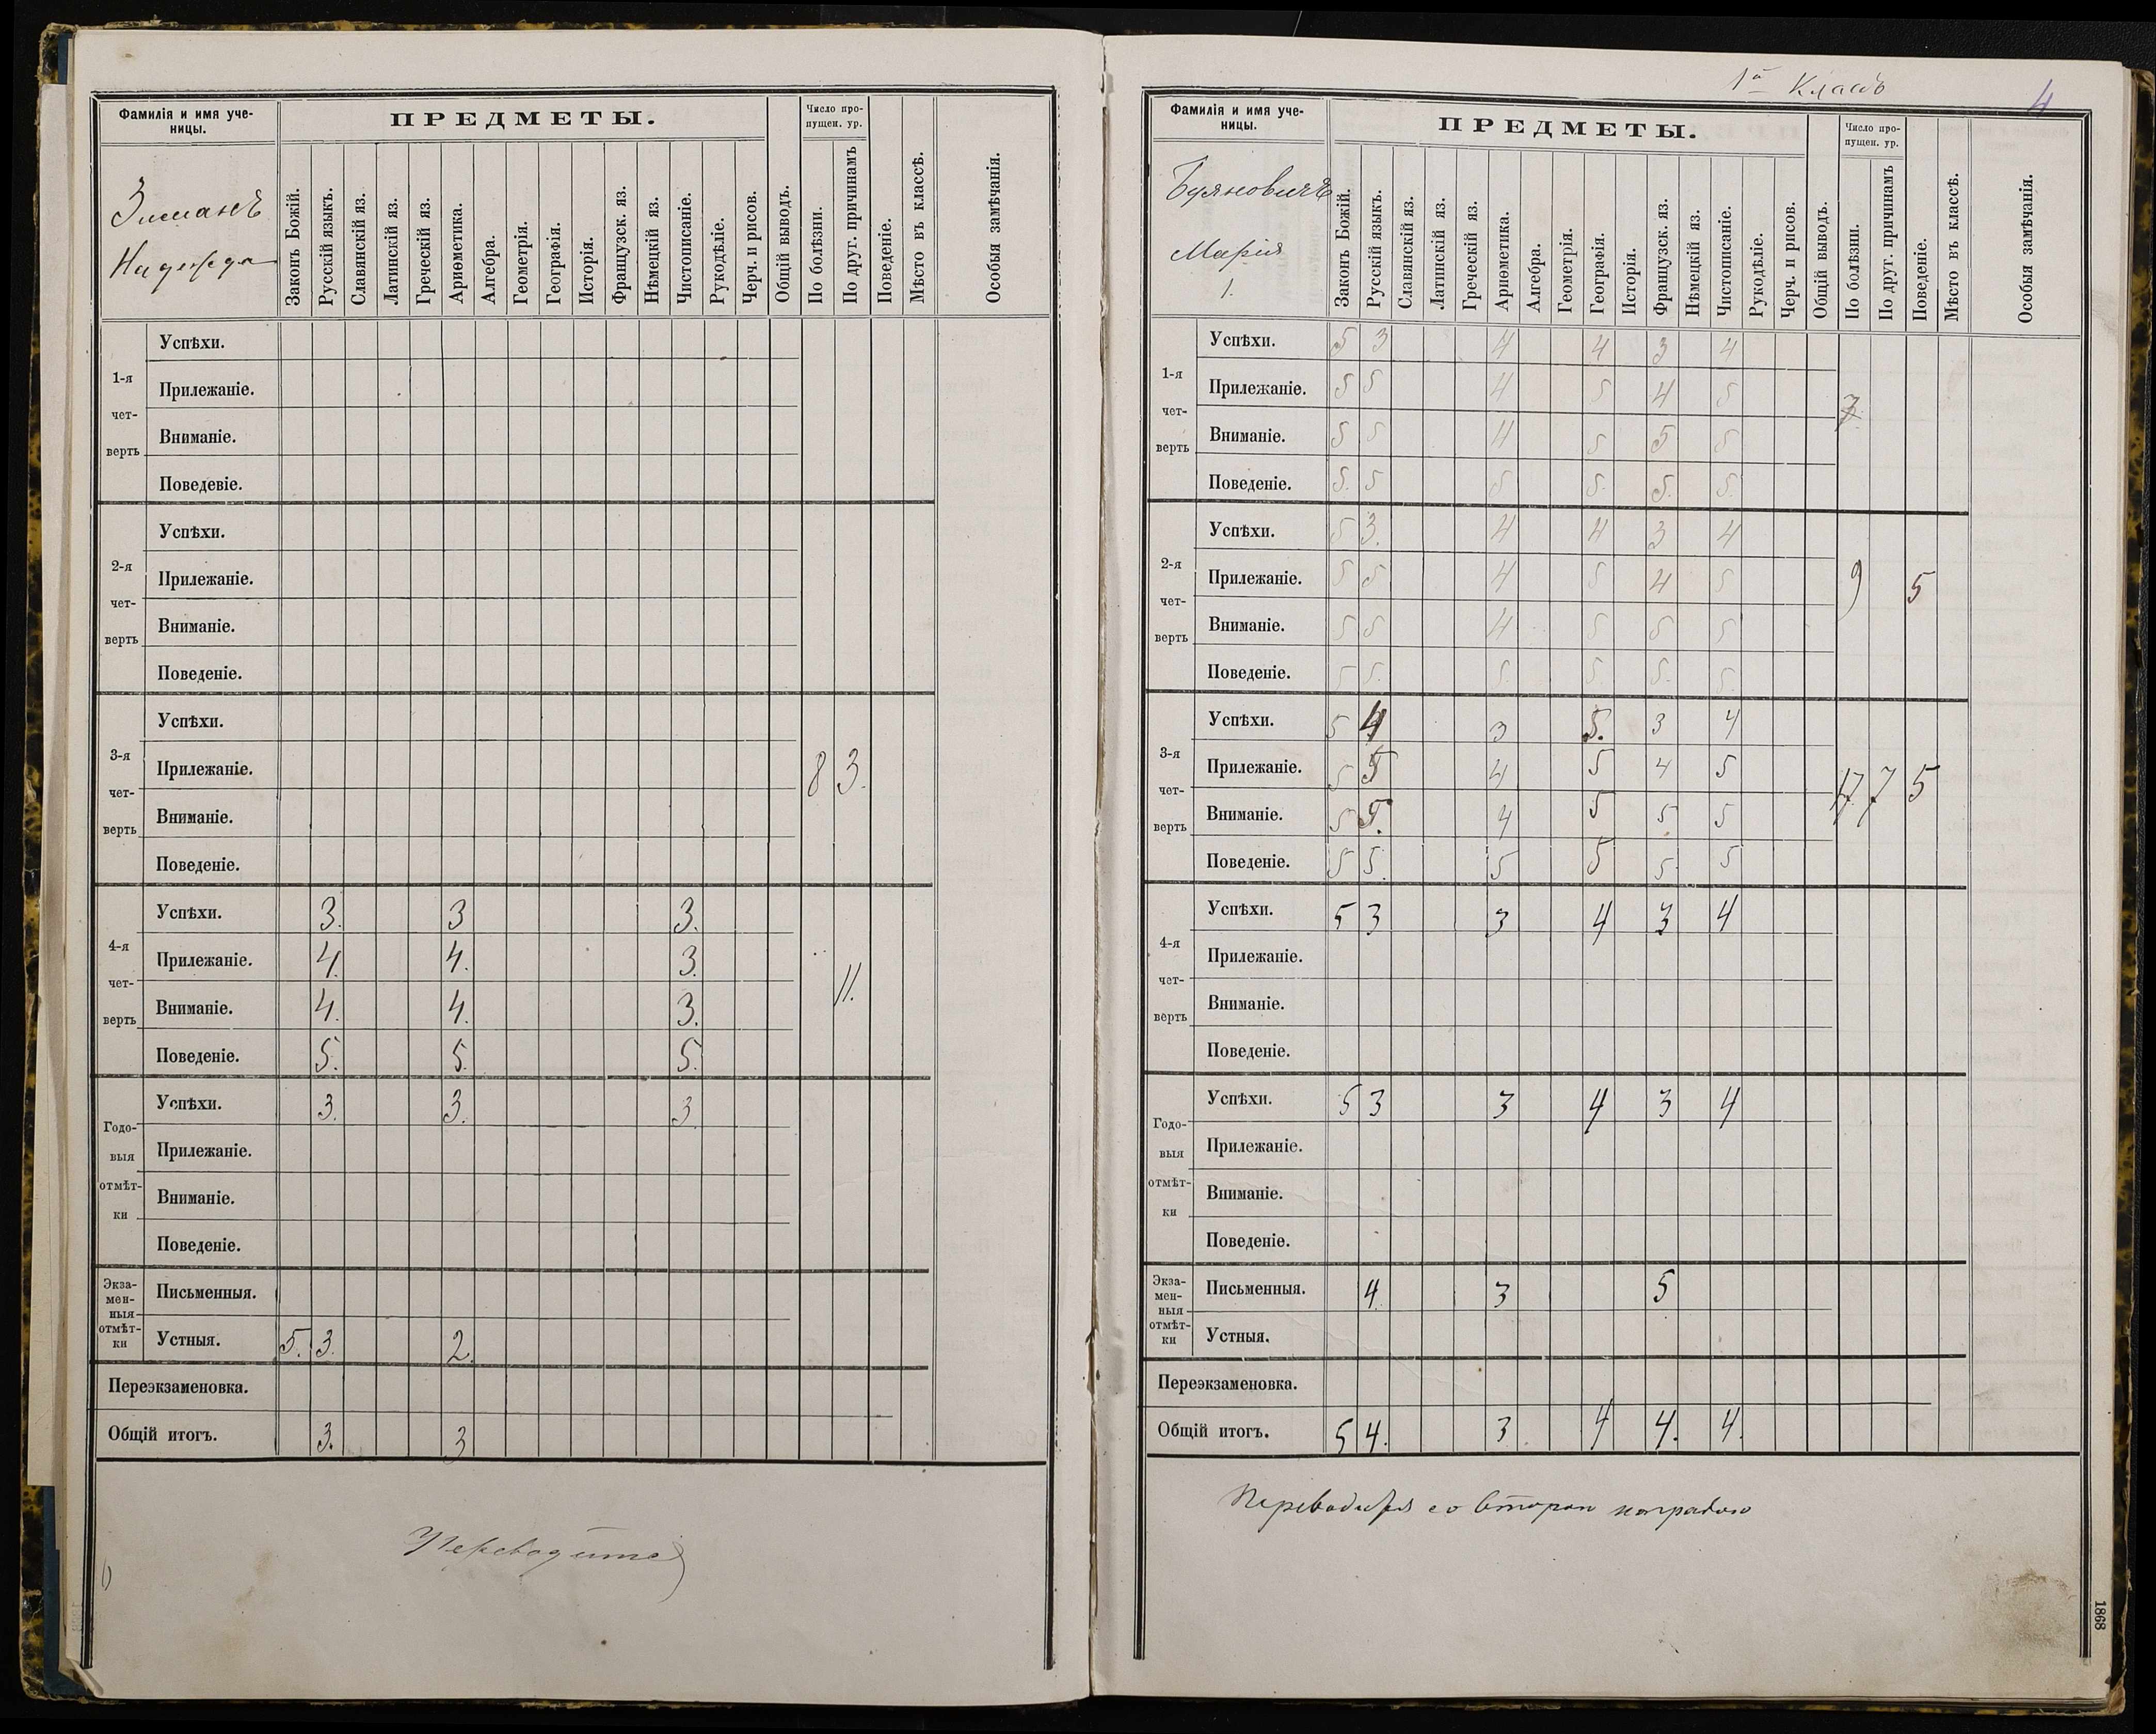 Фамилія и имя уче-
ницы.
ПРЕДМЕТЫ.
Число про-
пущен. ур.
Надежда
Законъ Божій.
Русскій языкъ.
Славянскій яз.
Латинскій яз.
Греческій яз.
Ариѳметика.
Алгебра.
Геометрія.
Географія.
Исторія.
Французск. яз.
Нѣмецкій яз.
Чистописаніе.
Рукодѣліе.
Черч. и рисов.
Общій выводъ.
По болѣзни.
По друг. причинамъ
Поведеніе.
Мѣсто въ классѣ.
Особыя замѣчанія.
1-я
чет-
верть
Успѣхи.
Прилежаніе.
Вниманіе.
Поведевіе.
2-я
чет-
верть
Успѣхи.
Прилежаніе.
Вниманіе.
Поведеніе.
3-я
чет-
верть
Успѣхи.
Прилежаніе. 8 3.
Вниманіе.
Поведеніе.
4-я
чет-
верть
Успѣхи. 3. 3 3.
Прилежаніе. 4. 4. 3.
Вниманіе. 4. 4. 3. 11.
Поведеніе. 5. 5. 5.
Годо-
выя
отмѣт-
ки
Успѣхи. 3. 3. 3.
Прилежаніе.
Вниманіе.
Поведеніе.
Экза-
мен-
ныя
отмѣт-
ки
Письменныя.
Устныя. 5. 3. 2.
Переэкзаменовка.
Общій итогъ. 3. 3
Переводится
1й Классъ
4
Фамилія и имя уче-
ницы.
ПРЕДМЕТЫ.
Число про-
пущен. ур.
Буяновичъ
Марія
1.
Законъ Божій.
Русскій языкъ.
Славянскій яз.
Латинскій яз.
Греческій яз.
Ариѳметика.
Алгебра.
Геометрія.
Географія.
Исторія.
Французск. яз.
Нѣмецкій яз.
Чистописаніе.
Рукодѣліе.
Черч. и рисов.
Общій выводъ.
По болѣзни.
По друг. причинамъ
Поведеніе.
Мѣсто въ классѣ.
Особыя замѣчанія.
1-я
чет-
верть
Успѣхи. 5 3 4 4 3 4
Прилежаніе. 5 5 4 5 4 5
3
Вниманіе. 5 5 4 5 5 5
Поведеніе. 5. 5 5 5. 5. 5.
2-я
чет-
верть
Успѣхи. 5 3. 4 4 3 4
Прилежаніе. 5 5 4 5 4 5 9 5
Вниманіе. 5 5 4 5 5 5
Поведеніе. 5 5. 5. 5. 5. 5.
3-я
чет-
верть
Успѣхи. 5 4 3 5. 3 4
Прилежаніе. 5 5 4 5 4 5 17 7 5
Вниманіе. 5 5. 4 5 5 5
Поведеніе. 5 5. 5 5 5 5
4-я
чет-
верть
Успѣхи. 5 3 3 4 3 4
Прилежаніе.
Вниманіе.
Поведеніе.
Годо-
выя
отмѣт-
ки
Успѣхи. 5 3 3 4 3 4
Прилежаніе.
Вниманіе.
Поведеніе.
Экза-
мен-
ныя
отмѣт-
ки
Письменныя. 4. 3 5
Устныя.
Переэкзаменовка.
Общій итогъ. 5 4. 3. 4 4. 4.
Переводится со второй наградою
1868